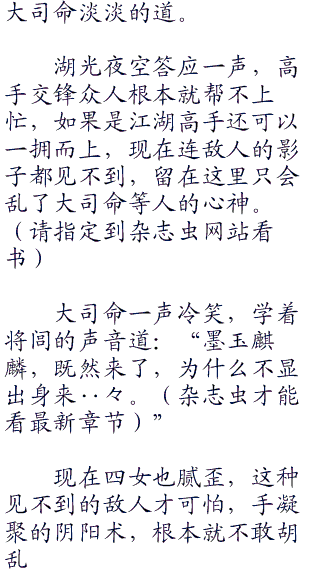 大司命淡淡的道。
湖光夜空答应一声，高
手交锋众人根本就帮不上
忙，如果是江湖高手还可以
一拥而上，现在连敌人的影
子都见不到，留在这里只会
乱了大司命等人的心神。
（请指定到杂志虫网站看
书）
大司命一声冷笑，学着
将闾的声音道：“墨玉麒
麟，既然来了，为什么不显
出身来··々。（杂志虫才能
看最新章节）”
现在四女也腻歪，这种
见不到的敌人才可怕，手凝
聚的阴阳术，根本就不敢胡
乱